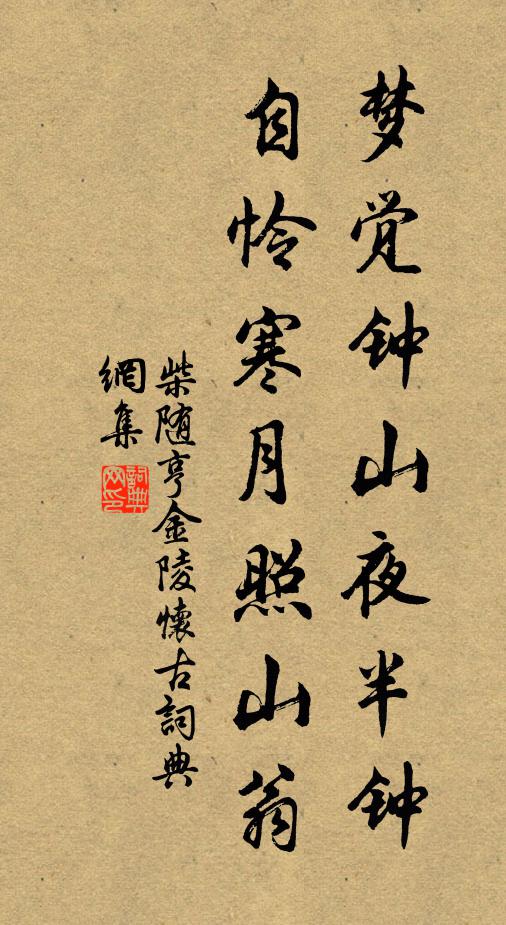 梦觉钟山夜半钟
自怜寒月照山翁
柴随亨金陵懷古詞典
網集
詞典网印